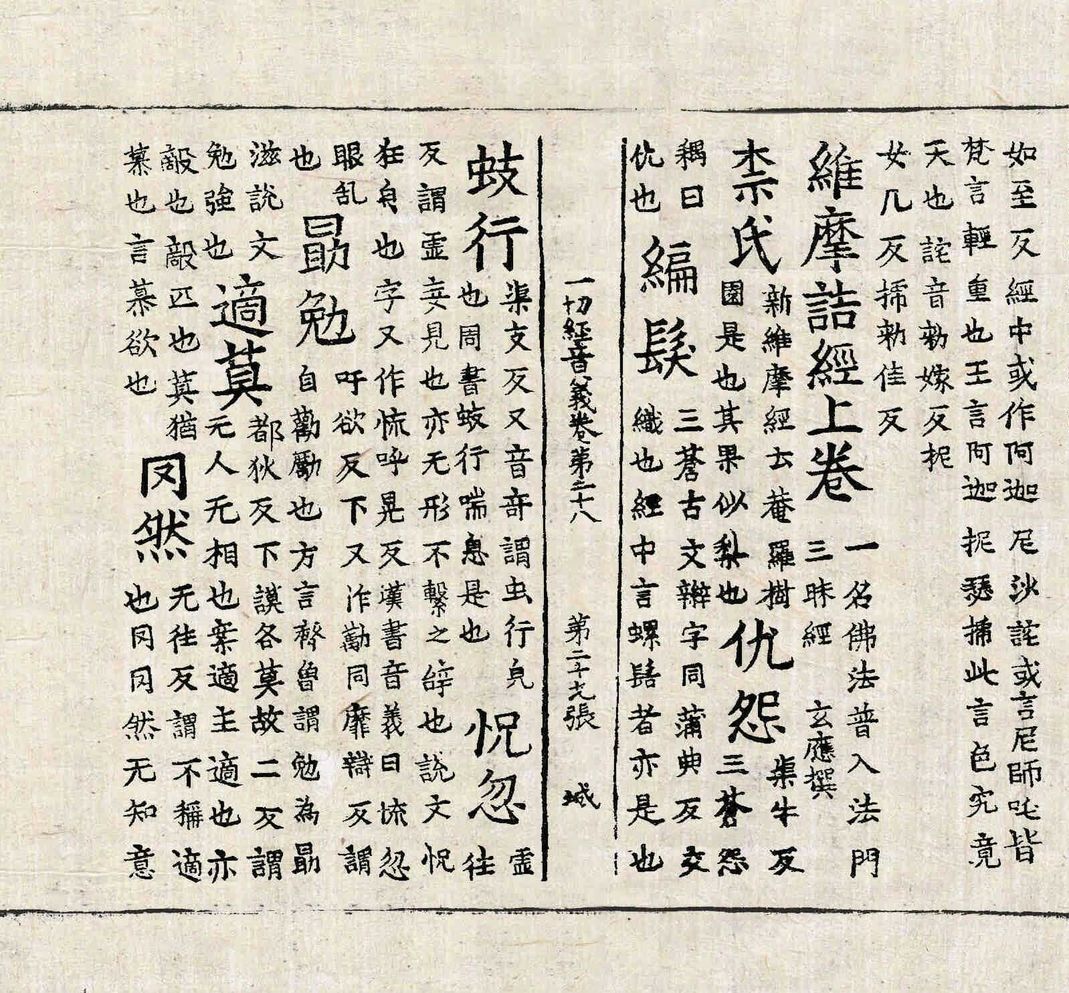 如至反經中或作阿迦尼沙詫或言尼師吒皆
梵言輕重也王言阿迦抳瑟搋此言色究竟
天也詫音勑嫁反抳
女几反搋勑佳反
維摩詰經上卷
一名佛法普入法門
三昧經 玄應撰
柰氏
新維摩經云菴羅樹
園是也其果似梨也
仇怨
渠牛反
三蒼怨
耦曰
仇也
編髮
三蒼古文辮字同蒲典反交
織也經中言螺髻者亦是也
一切經音義卷第二十八 第二十九張 城
蚑行
渠支反又音奇謂虫行皃
也周書蚑行喘息是也
怳忽
虛往
反謂虛妄見也亦无形不繫之辝也說文怳
狂皃也字又作慌呼晃反漢書音義曰慌忽
眼乱
也
勗勉
吁欲反下又作勸同靡辯反謂
自勸勵也方言齊魯謂勉為勗
滋說文
勉強也
適莫
都狄反下謨各莫故二反謂
无人无相也案適主適也亦
敵也敵匹也莫猶
慕也言慕欲也
罔然
无往反謂不稱適
也罔罔然无知意